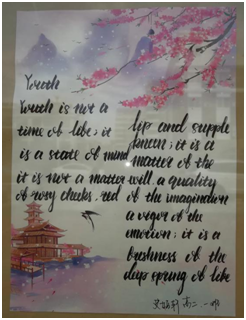 Youth
Youth is not a
time of life; it
is a state of mind
it is not a matter
of rosy cheeks, red
lip and supple
kneen; it is a
matter of the
will, a quality
of the imagination
a vigor of the
emotion; it is a
freshness of the
deep spring of life
高二